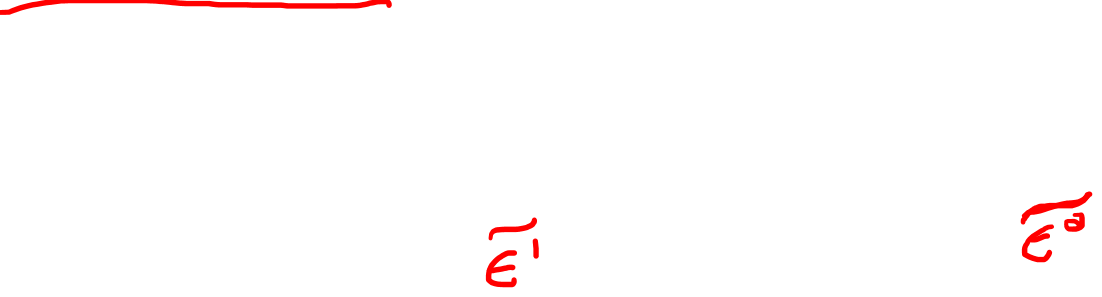 ε̃¹ ε̃²